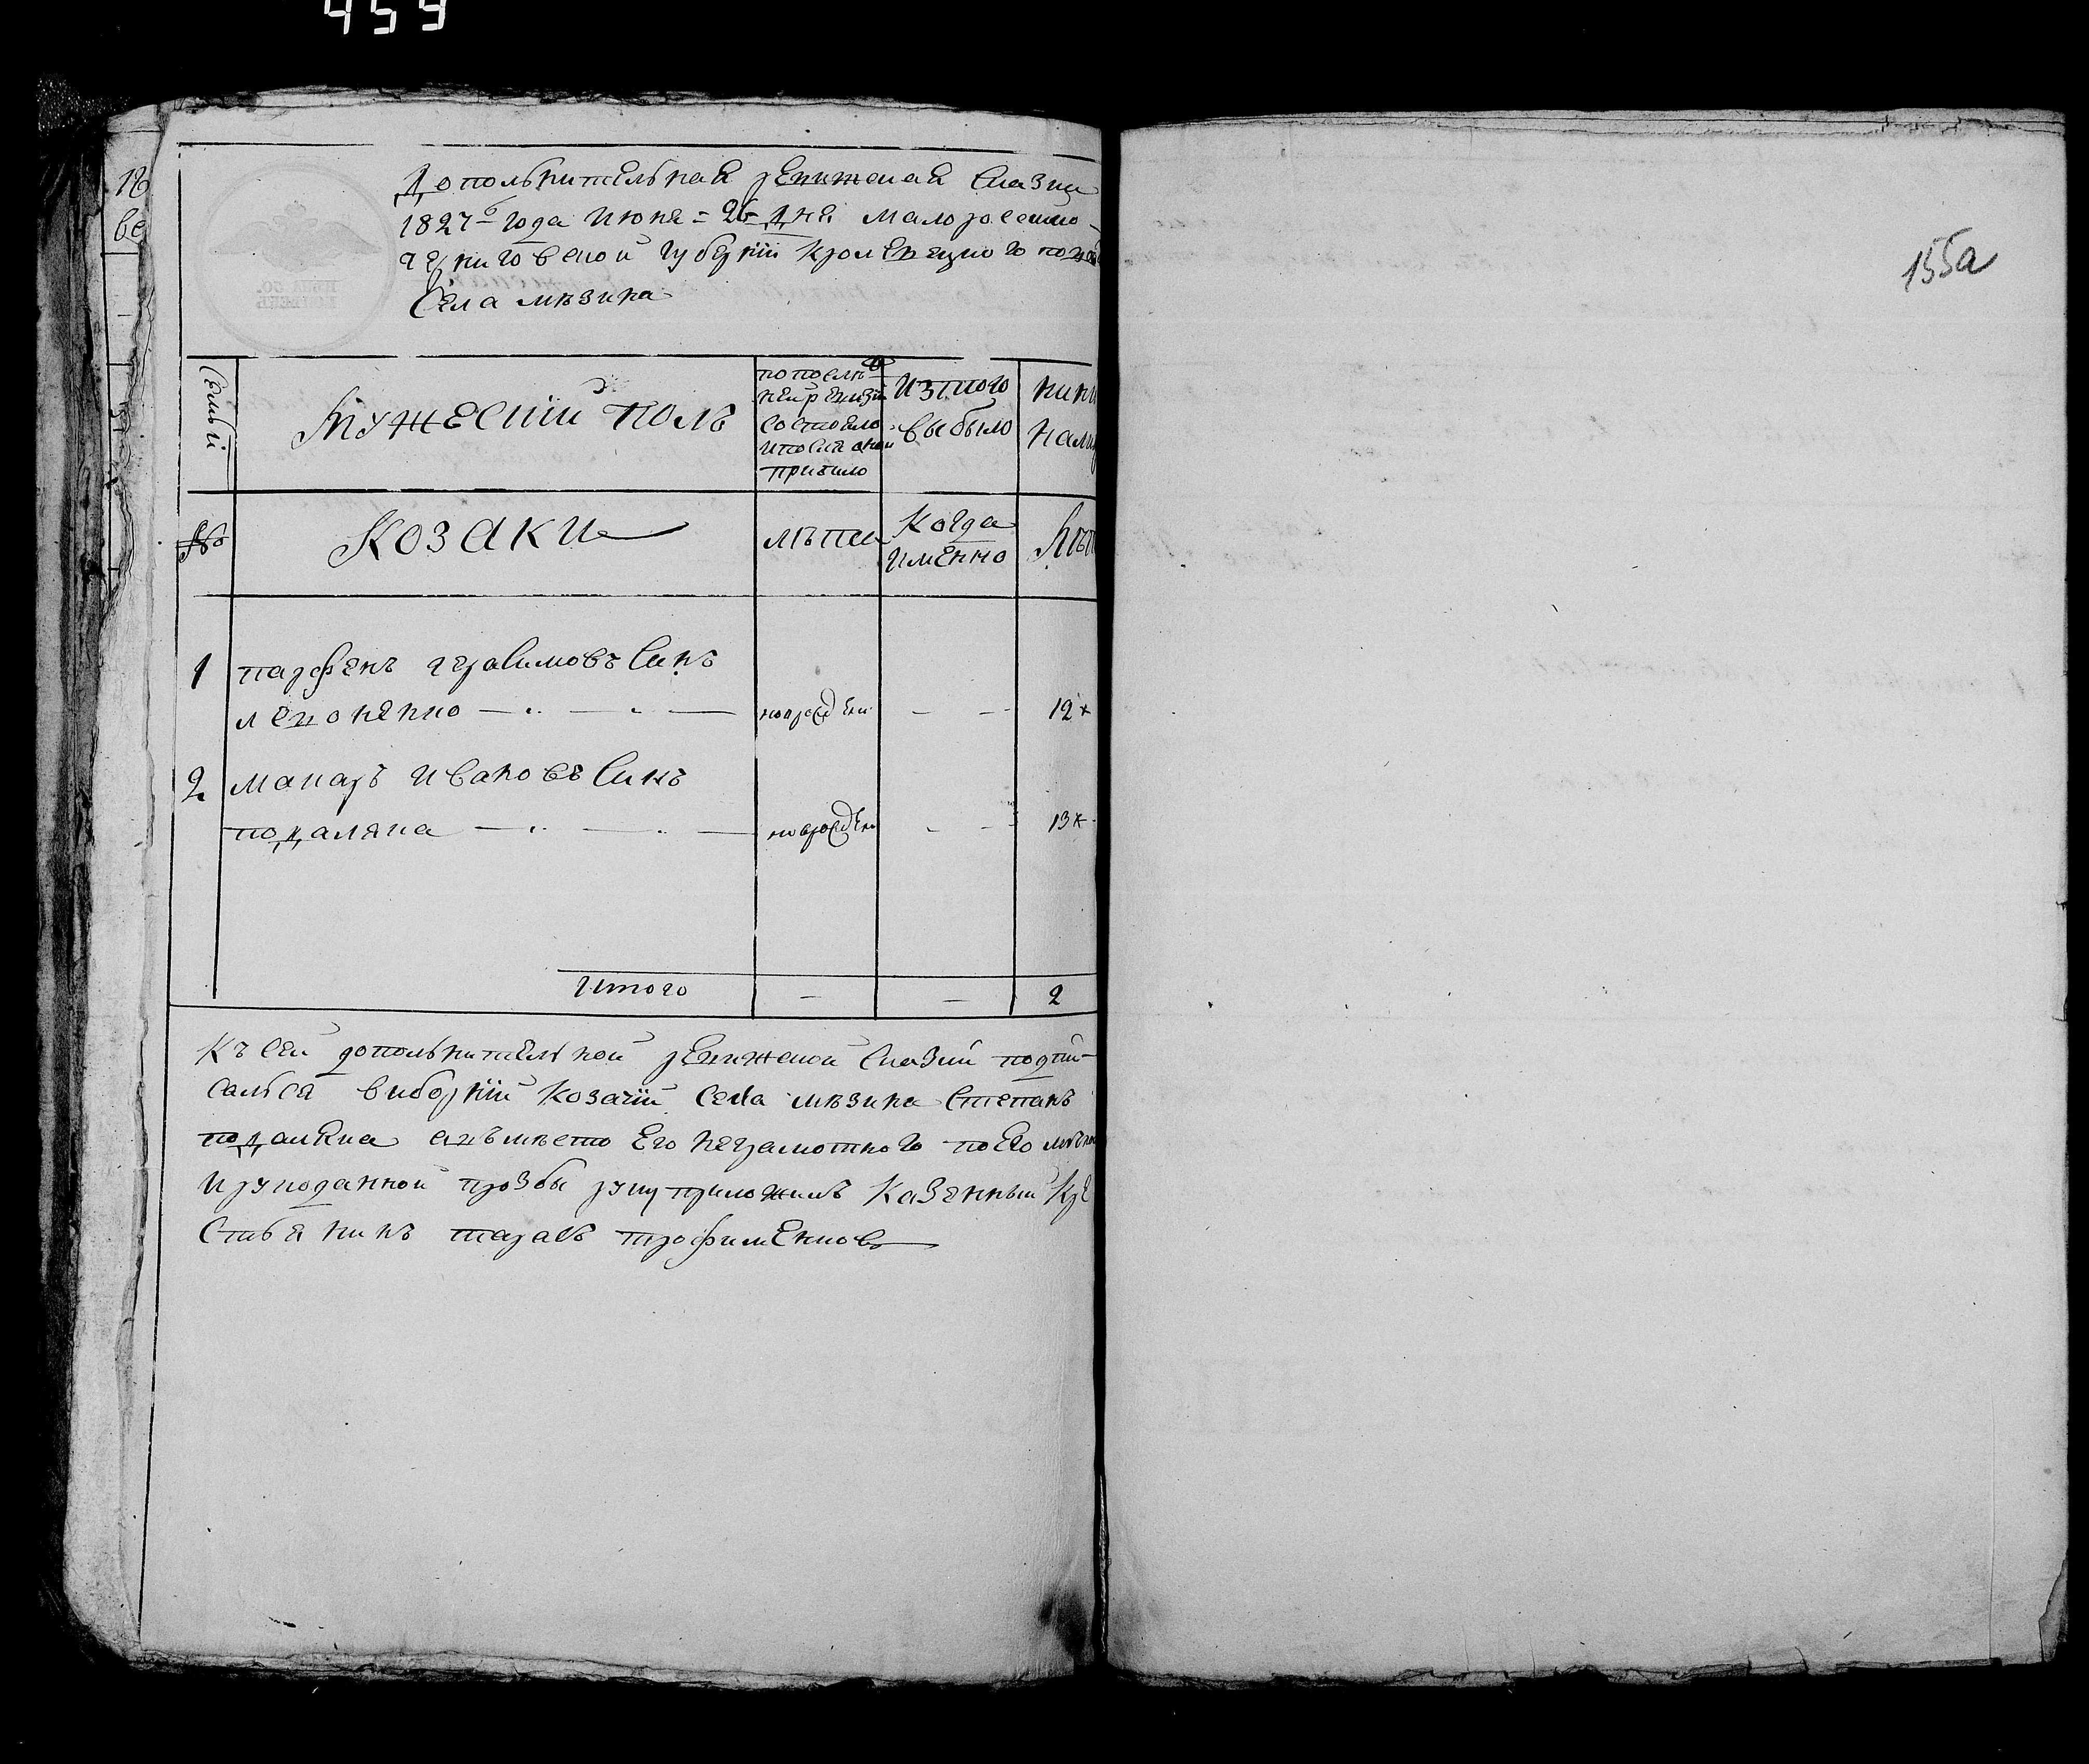 459
Допольнительная ревижская Сказка
1827 года Июня 26 Дня Малоросейско
Черниговской губернїи Кролевецкого по
Села Мѣзина
155а
Семьи
Мужескїй полъ
По послѣд
ней ревизїи
Состояло
и после оной
прибило
Изтого
выбыло
№
Козаки
лѣта
Когда
имѣнно
1 парфенъ герасимовъ Синъ
леноненко новорожден — 12
2 макаръ Ивановъ Синъ
подаляка новорожден — 13
Итого — — 2
Къ Сей дополнительной ревижской Сказки подпи-
сался виборнїй Козачїй Села Мѣзина Степанъ
подаляка авъмѣсто Его неграмотного по Его
и рукоданной прозбы руку приложилъ Казенный Кре
Стьянинъ тарасъ трофименковъ